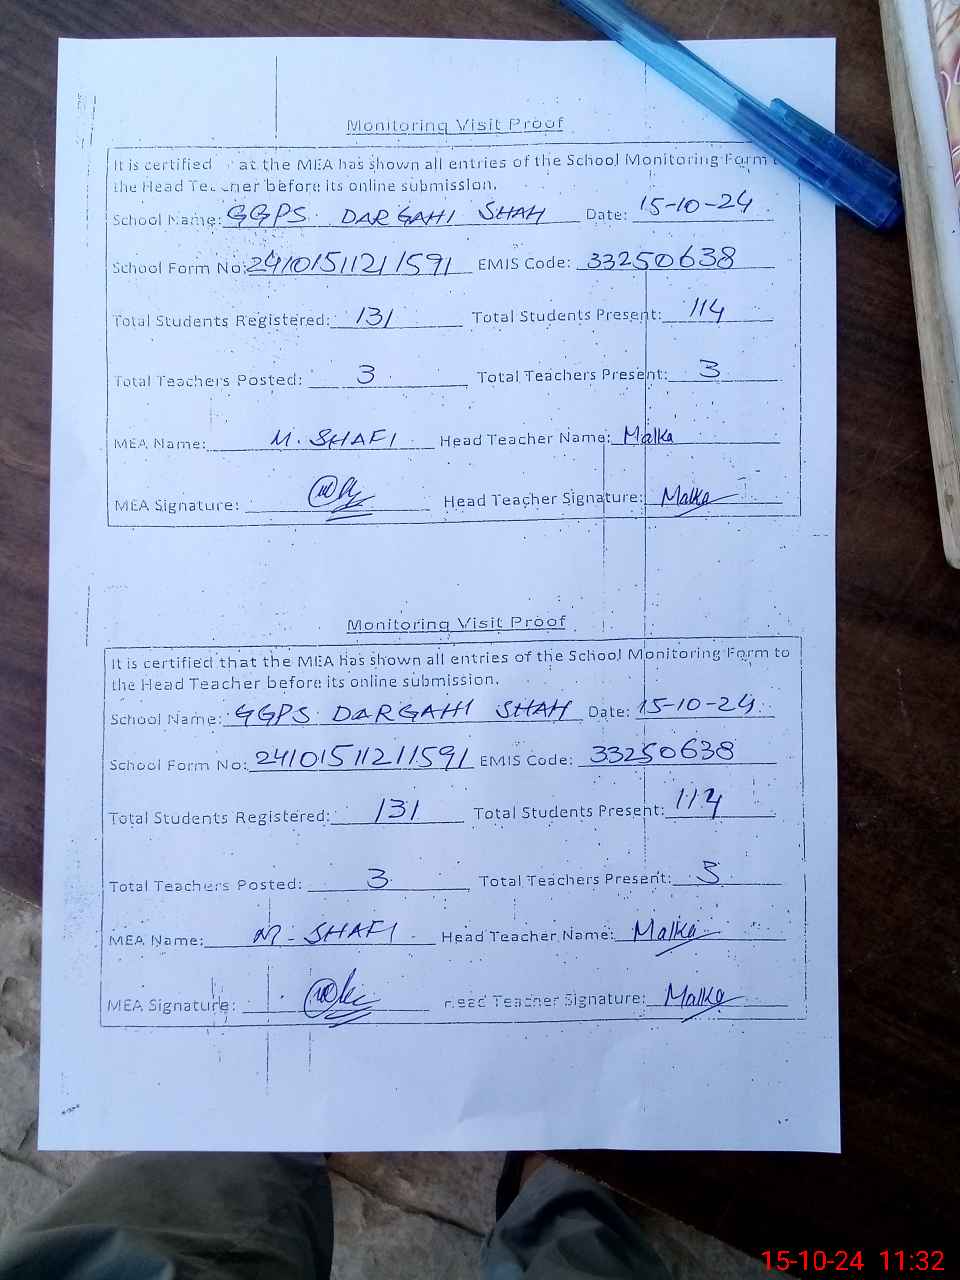 Monitoring Visit Proof
It is certified at the MEA has shown all entries of the School Monitoring Form
the Head Teacher before its online submission.
School Name: GGPS DARGAHI SHAH Date: 15-10-24
School Form No: 2410151121159​1 EMIS Code: 33250638
Total Students Registered: 131 Total Students Present: 114
Total Teachers Posted: 3 Total Teachers Present: 3
MEA Name: M. SHAFI Head Teacher Name: Malka
MEA Signature: Head Teacher Signature: Malka
Monitoring Visit Proof
It is certified that the MEA has shown all entries of the School Monitoring Form to
the Head Teacher before its online submission.
School Name: GGPS DARGAHI SHAH Date: 15-10-24
School Form No: 24101511211591 EMIS Code: 33250638
Total Students Registered: 131 Total Students Present: 114
Total Teachers Posted: 3 Total Teachers Present: 3
MEA Name: M - SHAFI Head Teacher Name: Malka
MEA Signature: Head Teacher Signature: Malka
15-10-24 11:32